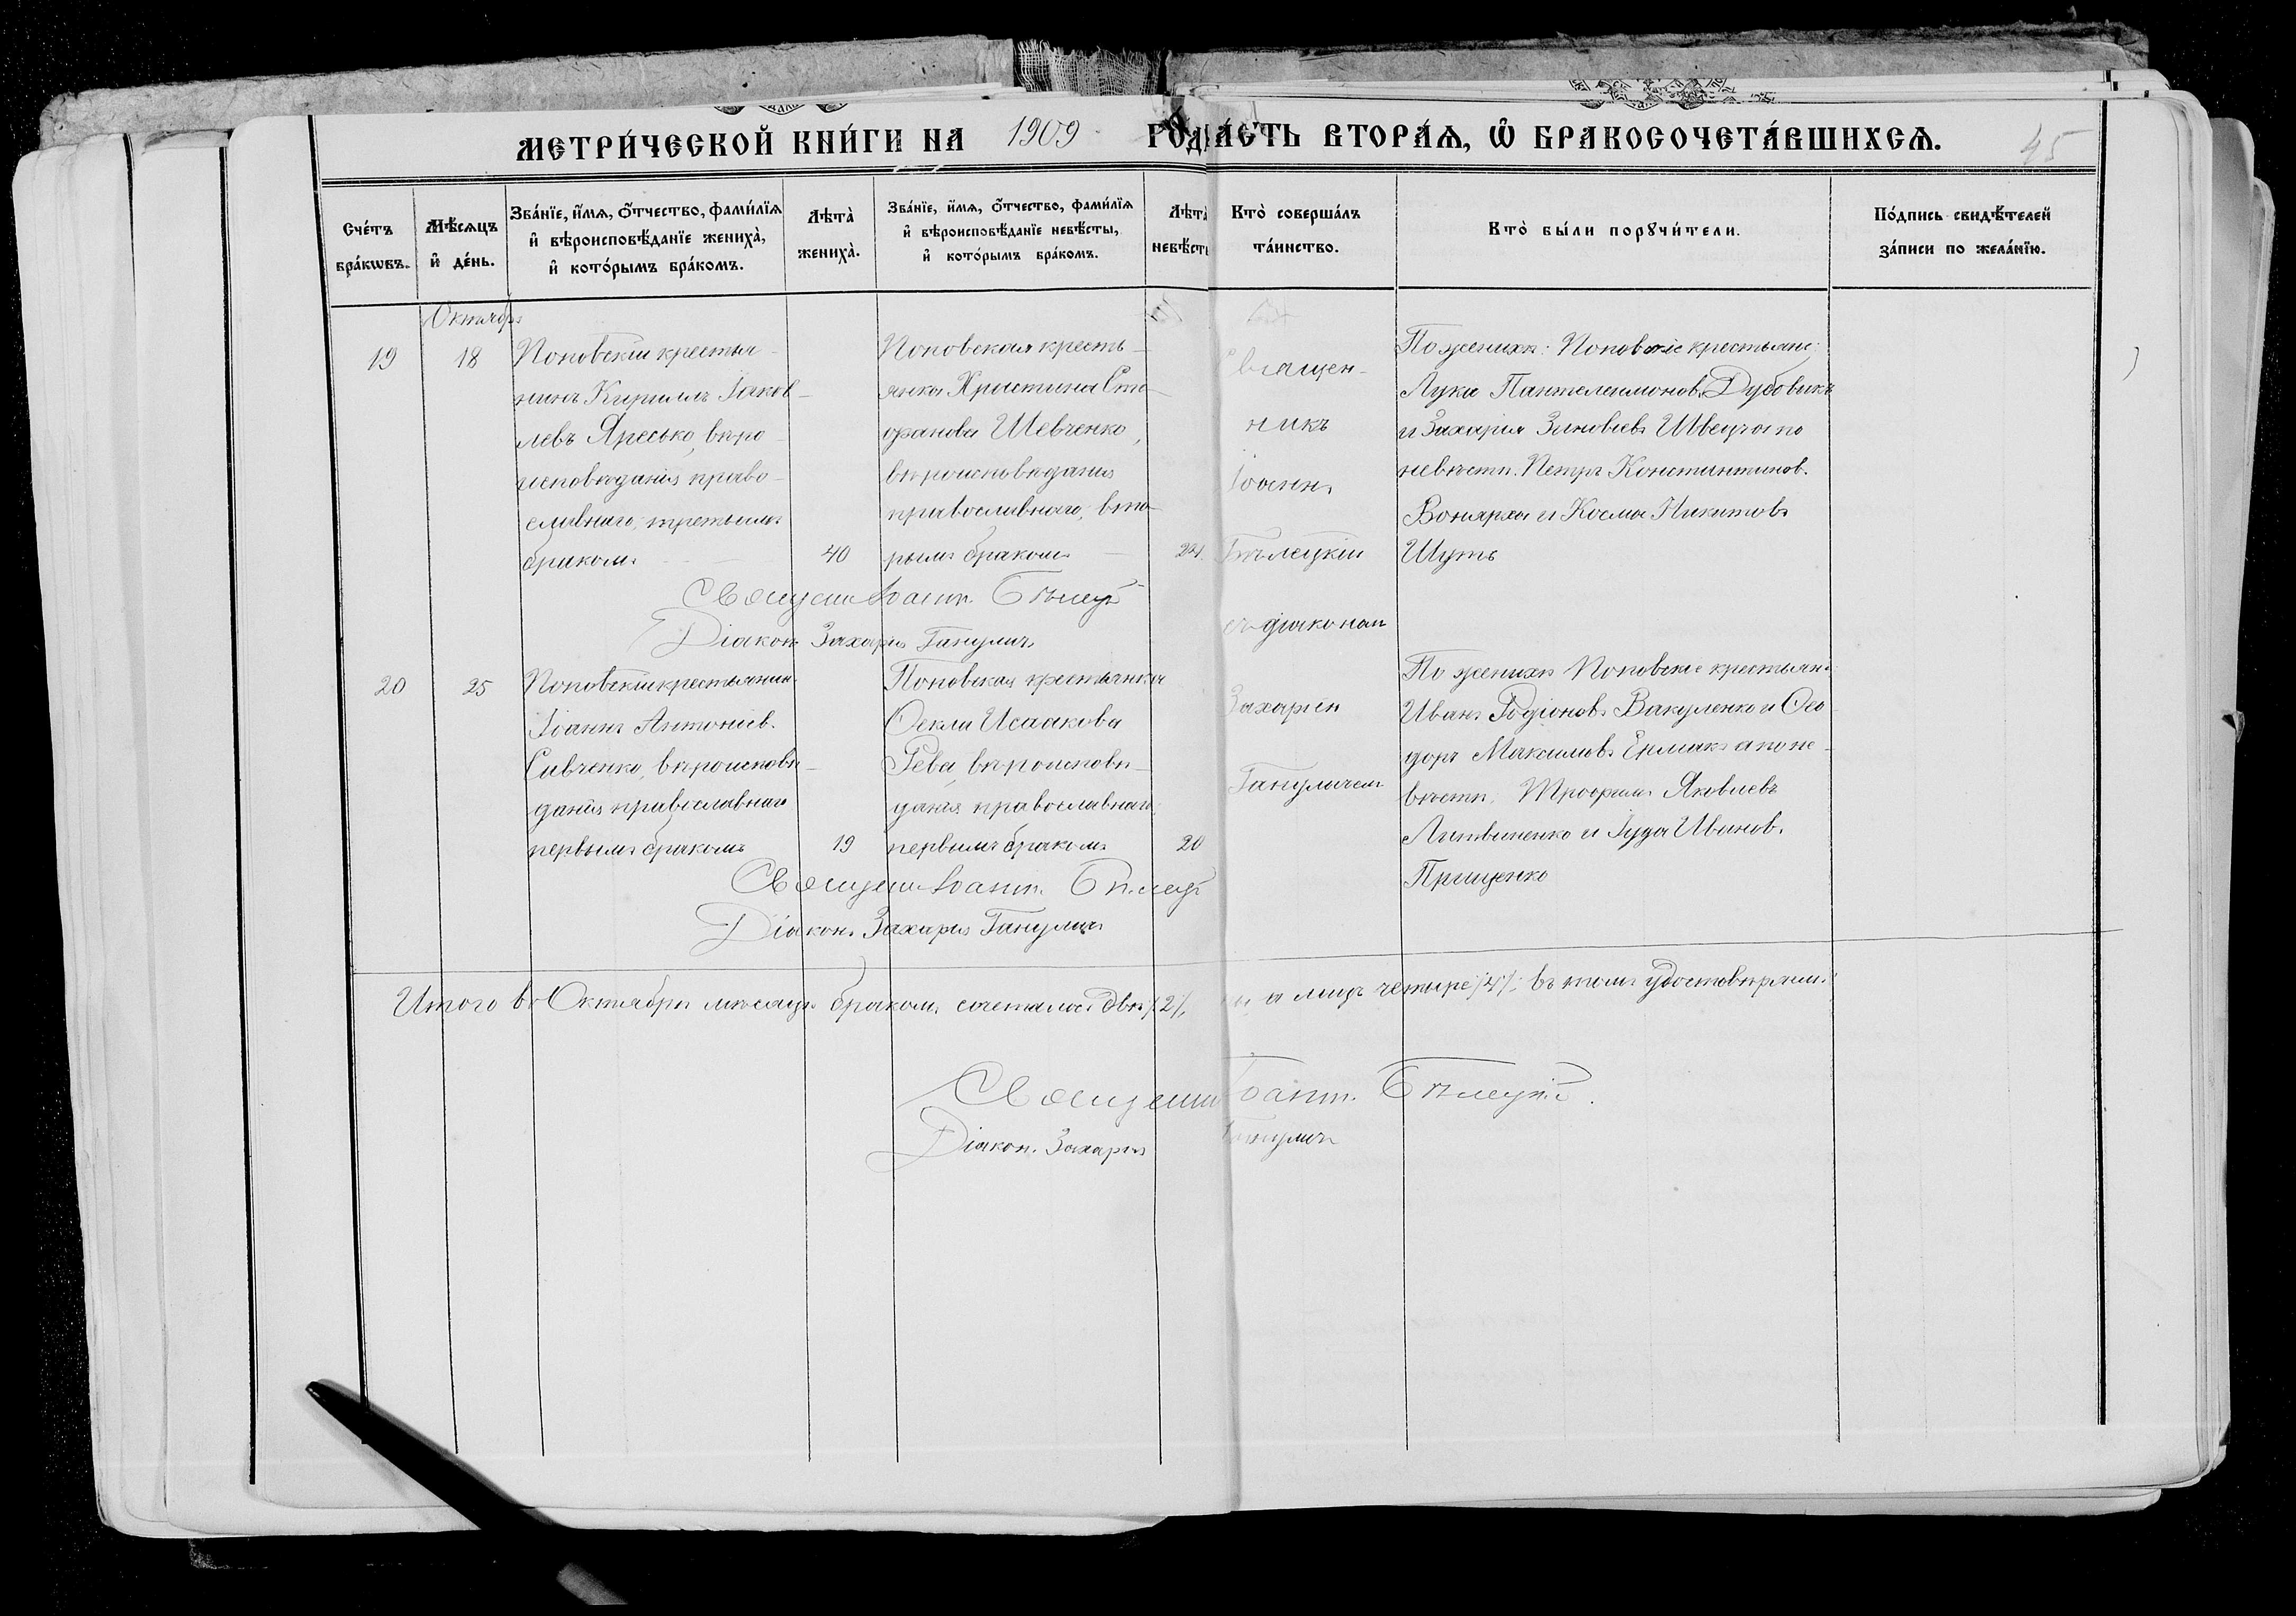 МЕТРИ́ЧЕСКОЙ КНИ́ГИ НА 1909 ГОД
А́СТЬ ВТОРА́Я, Ѿ БРАКОСОЧЕТА́ВШИХСЯ.
45
Сче́тъ
бра́кѡвъ.
Мѣ́сяцъ
и҆ де́нь.
Зва́нїе, и҆́мя, ѻ҆́тчество, фами́лїя
и҆ вѣроисповѣ́данїе жениха̀,
и҆ кото́рымъ бра́комъ.
Лѣта̀
жениха̀.
Зва́нїе, и҆́мя, ѻ҆́тчество, фами́лїя
и҆ вѣроисповѣ́данїе невѣ́сты,
и҆ кото́рымъ бра́комъ.
Лѣта̀
невѣ́сты
Кто̀ соверша́лъ
та́инство.
Кто̀ бы́ли порꙋчи́тели.
По́дпись свидѣ́телей
за́писи по жела́нїю.
Октябрь
19
18
Поповскій крестья-
нинъ Кириллъ Іаков-
левъ Яресько, вѣро-
исповѣданія право-
славнаго, третьимъ
бракомъ
40
Поповская кресть-
янка Христина Сте-
фанова Шевченко,
вѣроисповѣданія
православнаго, вто-
рымъ бракомъ
24
Священ-
никъ
Іоаннъ
Бѣлецкій
съ діакономъ
Захаріей
Ганулычемъ
По женихѣ: Поповскіе крестьяне:
Лука Пантелеимоновъ Дубовикъ
и Захарія Зиновіевъ Швец а по
невѣстѣ. Петръ Константинов.
Вонярха и Косма Никитовъ
Шуть
Священ Іоаннъ Бѣлец
Діаконъ Захарія Ганулич
20
25
Поповскій крестьянинъ
Іоаннъ Антоніев.
Сивченко, вѣроисповѣ-
данія православнаго
первымъ бракомъ
19
Поповская крестьянка
Ѳекла Исаакова
Рева, вѣроисповѣ-
данія православнаго
первымъ бракомъ
20
По женихѣ Поповскіе крестьяне
Иванъ Родіоновъ Вакуленко и Ѳео-
доръ Максимовъ Ермакъ а по не-
вѣстѣ, Трофимъ Яковлевъ
Литвиненко и Іуда Иванов.
Прищенко
Священ Іоаннъ Бѣлец
Діаконъ Захарія Ганулич
Итого въ Октябрѣ мѣсяцѣ бракомъ сочеталось двѣ /2/ а лицъ четыре /4/; въ томъ удостовѣряемъ:
Священ Іоаннъ Бѣлецкій.
Діаконъ Захарія Ганулич